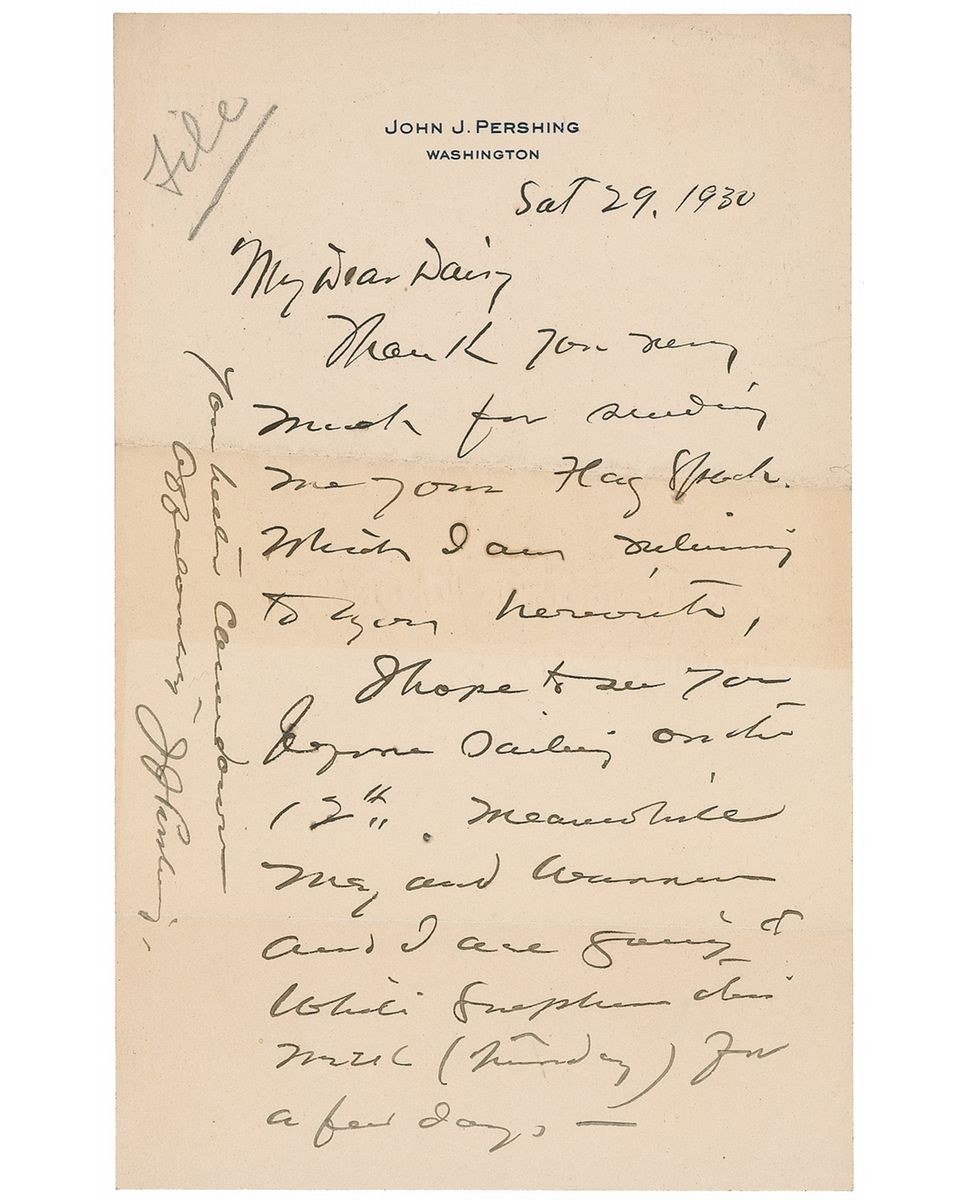 File
JOHN J. PERSHING
WASHINGTON
Sat 29, 1930
My Dear Daisy
Thank you very
much for sending
me your Flag Speech.
Which I am returning
to you herewith,
I hope to see you
before sailing on the
12th. Meanwhile
May and Warren
and I are going to
White Sulphur this
week (Thursday) for
a few days —
You better come down
Affectionately JJPershing.